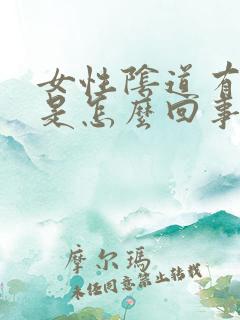 女性陰道有
是怎麼回事
摩尔瑪
未经同意禁止转载